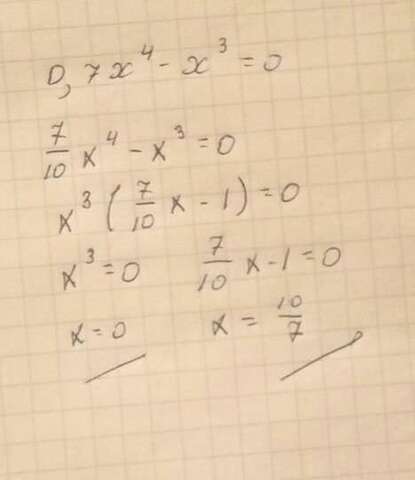 0,7x⁴ - x³ = 0
7/10 x⁴ - x³ = 0
x³ (7/10 x - 1) = 0
x³ = 0 7/10 x - 1 = 0
x = 0 x = 10/7